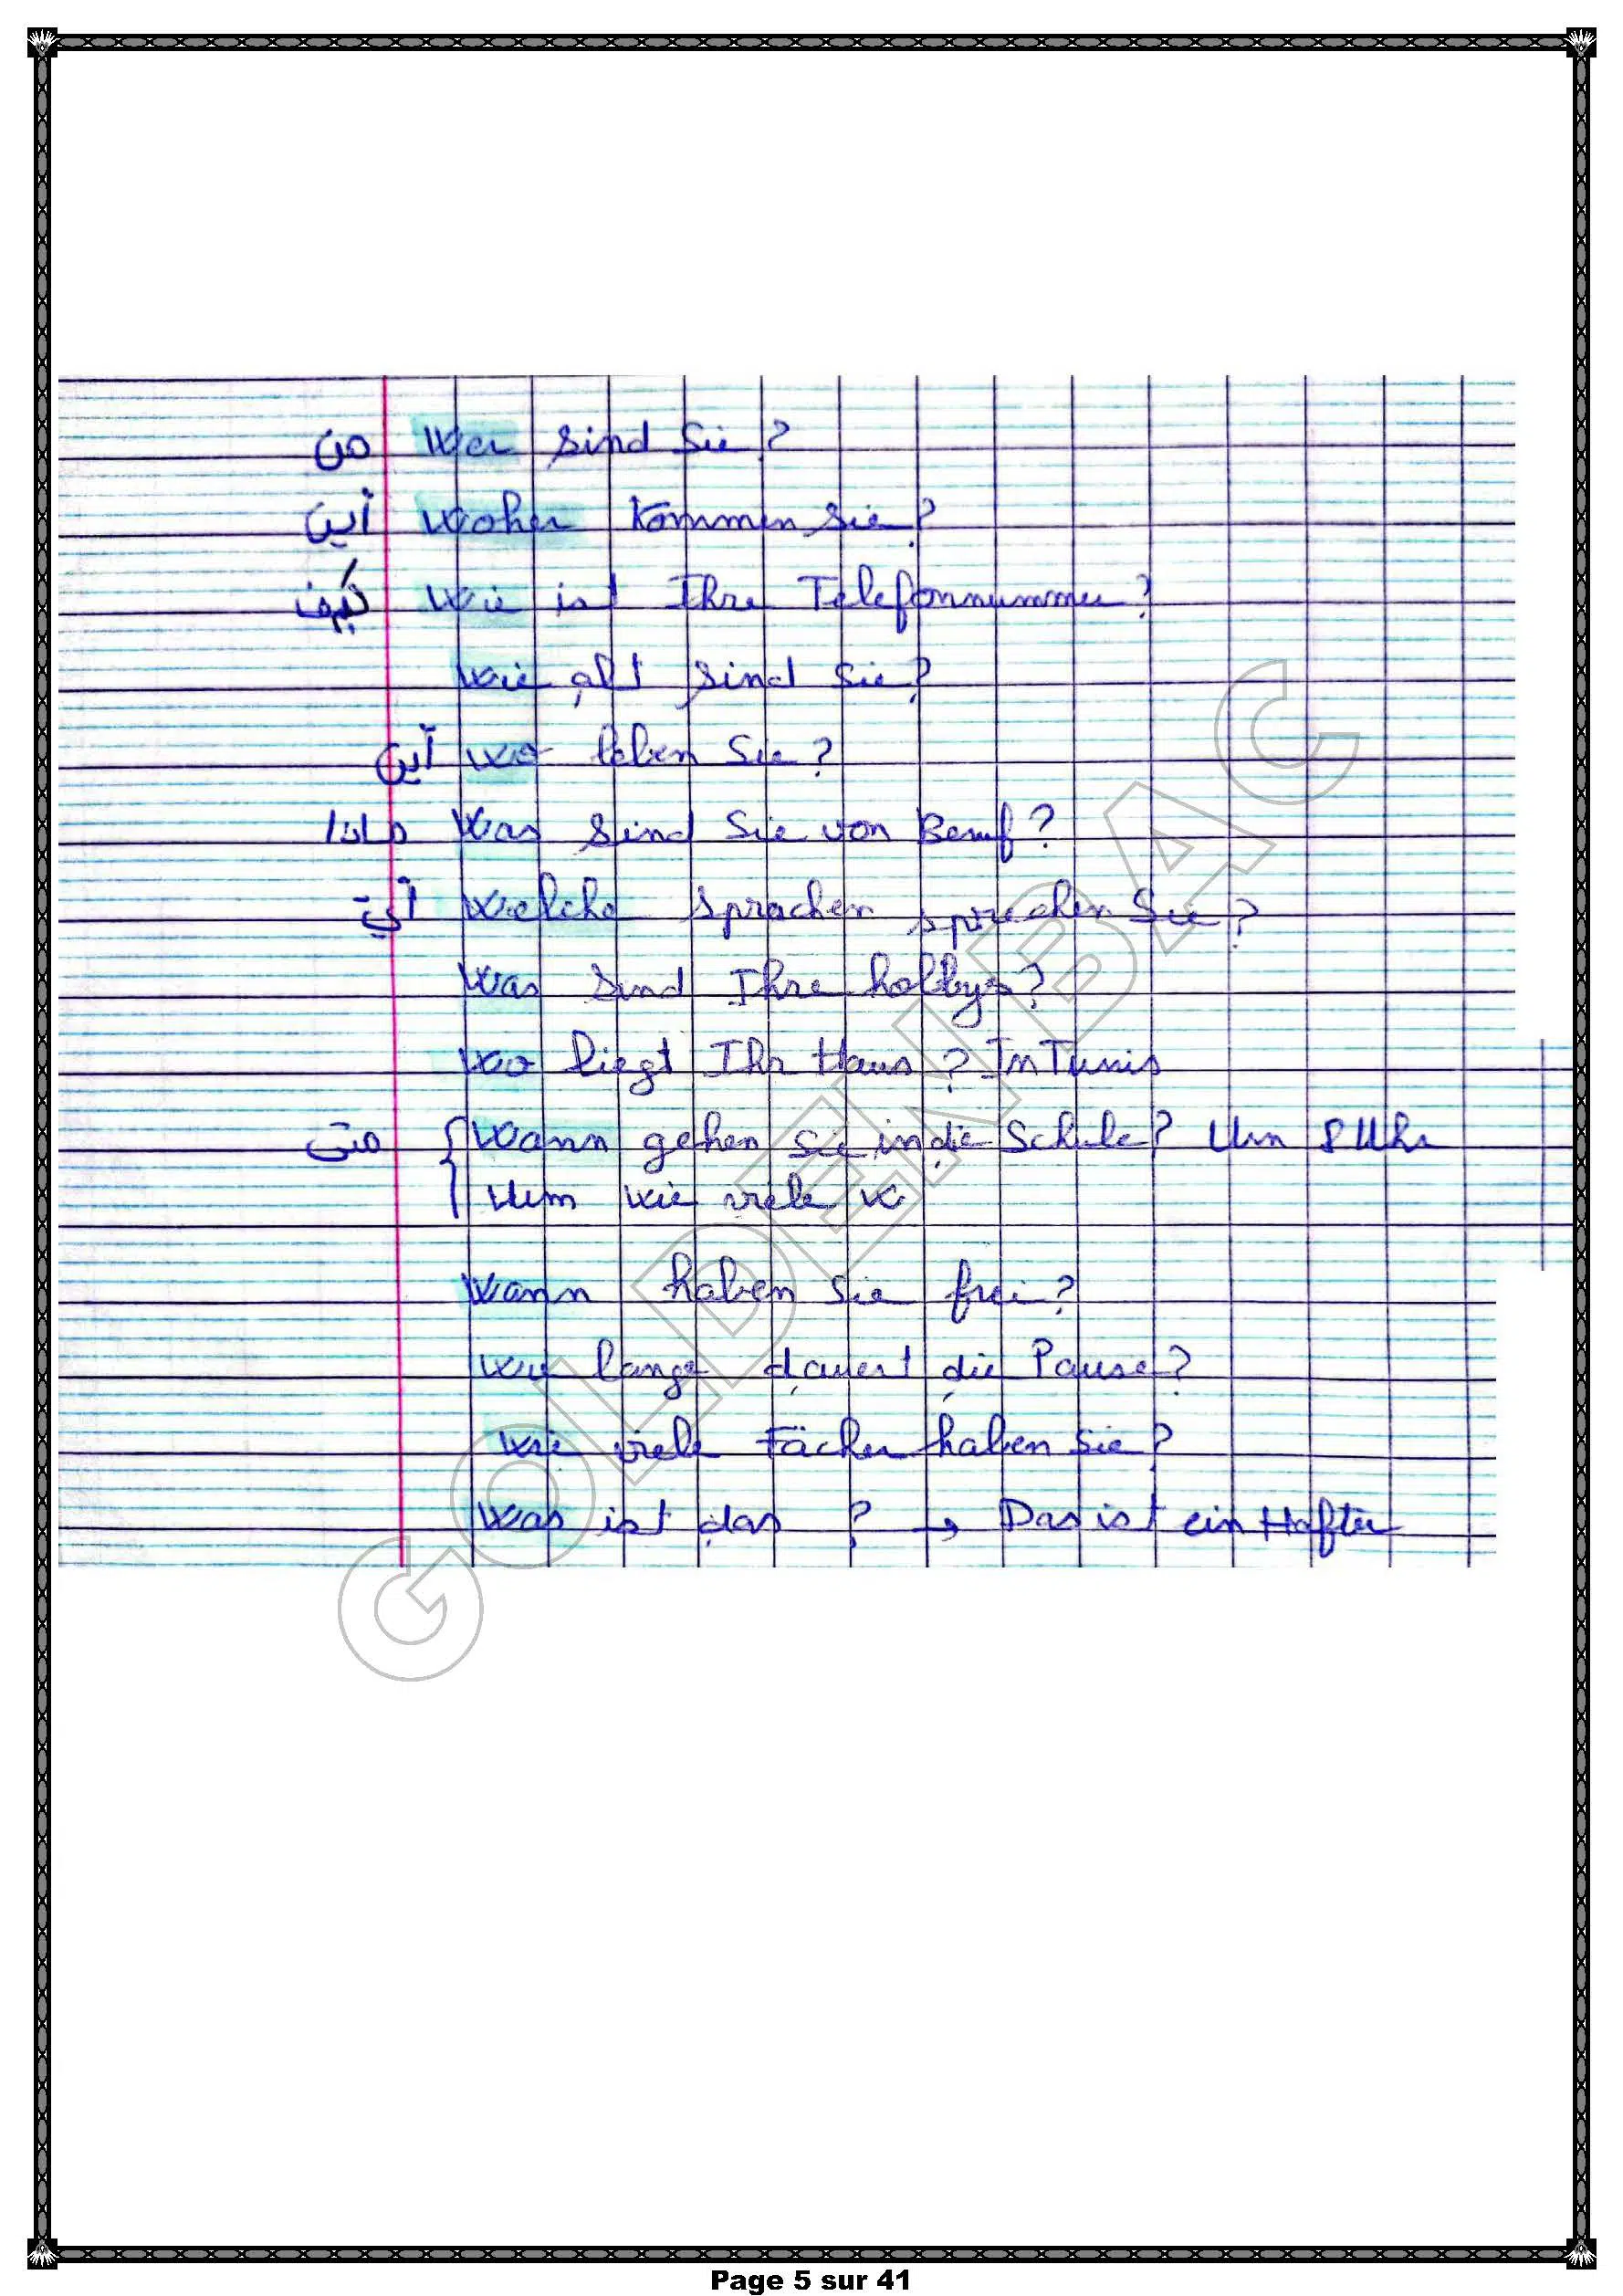 من Wer sind Sie?
أين Woher kommen Sie?
كيف Wie ist Ihre Telefonnummer?
Wie alt sind Sie?
أين Wo leben Sie?
ماذا Was sind Sie von Beruf?
أيّ Welche sprachen sprechen Sie?
Was sind Ihre hobbys?
Wo liegt Ihr Haus? In Tunis
متى Wann gehen Sie in die Schule? Um 8 Uhr
Um wie viele
Wann haben Sie frei?
Wie lange dauert die Pause?
Wie viele Fächer haben Sie?
Was ist das? → Das ist ein Hafter
GOLDENBAC
Page 5 sur 41